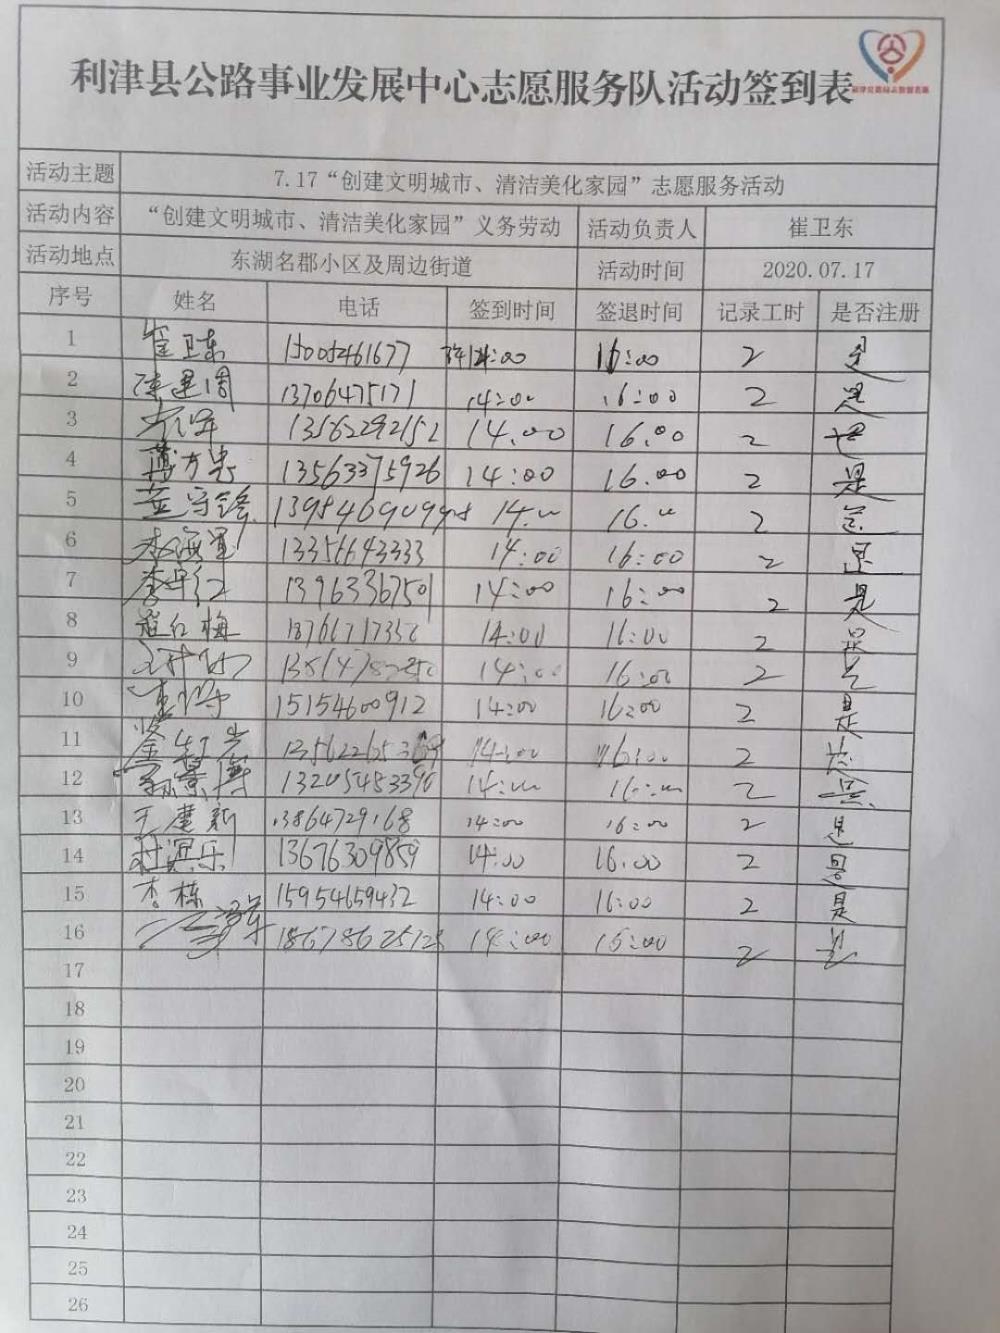 利津县公路事业发展中心志愿服务队活动签到表
活动主题 7.17“创建文明城市、清洁美化家园”志愿服务活动
活动内容 “创建文明城市、清洁美化家园”义务劳动 活动负责人 崔卫东
活动地点 东湖名郡小区及周边街道 活动时间 2020.07.17
序号 姓名 电话 签到时间 签退时间 记录工时 是否注册
1 崔卫东 15005461677 14:00 16:00 2 是
2 陈建周 13706475171 14:00 16:00 2 是
3 13562292152 14.00 16.00 2 是
4 13563375926 14:00 16.00 2 是
5 14. 16. 2 是
6 李海军 13356643333 14:00 16:00 2 是
7 李丹红 13963367501 14:00 16:00 2 是
8 红梅 14:00 16:00 2 是
9 14:00 16:00 2 是
10 15154600912 14:00 16:00 2 是
11 14:00 16:00 2 是
12 孙景海 14: 16: 2 是
13 王建新 13864729168 14:00 16:00 2 是
14 13676309859 14:00 16.00 2 是
15 李栋 15954659432 14:00 16:00 2 是
16 14:00 16:00 2 是
17
18
19
20
21
22
23
24
25
26